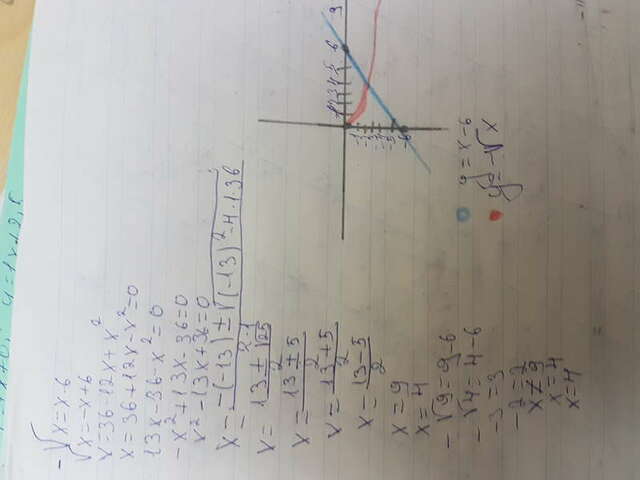 -√x = x-6
√x = -x+6
x = 36-12x+x²
x = 36+12x-x²=0
13x-36-x²=0
-x²+13x-36=0
x²-13x+36=0
x = -(-13)±√(-13)²-4·1·36
2·1
x = 13±√25
2
x = 13±5
2
x = 13+5
2
x = 13-5
2
x = 9
x = 4
-√9 = 9-6
-√4 = 4-6
-3 = 3
-2 = 2
x ≠ 9
x = 4
x = 4
6
9
y = x-6
y = -√x